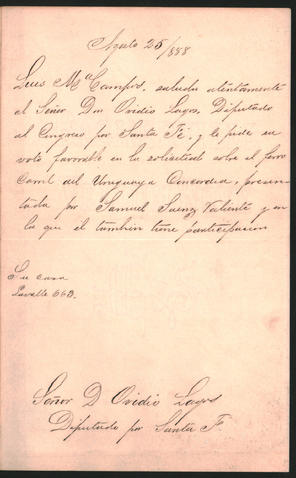 Agosto 25/888
Luis Mª Campos, saluda atentamente
al Señor Don Ovidio Lagos, Diputado
al Congreso por Santa Fé, y le pide su
voto favorable en la solicitud sobre el ferro
carril del Uruguay a Concordia, presen
tada por Samuel Saenz Valiente y en
la que el tambien tiene participacion
Su casa
Lavalle 663.
Señor D Ovidio Lagos
Diputado por Santa F.